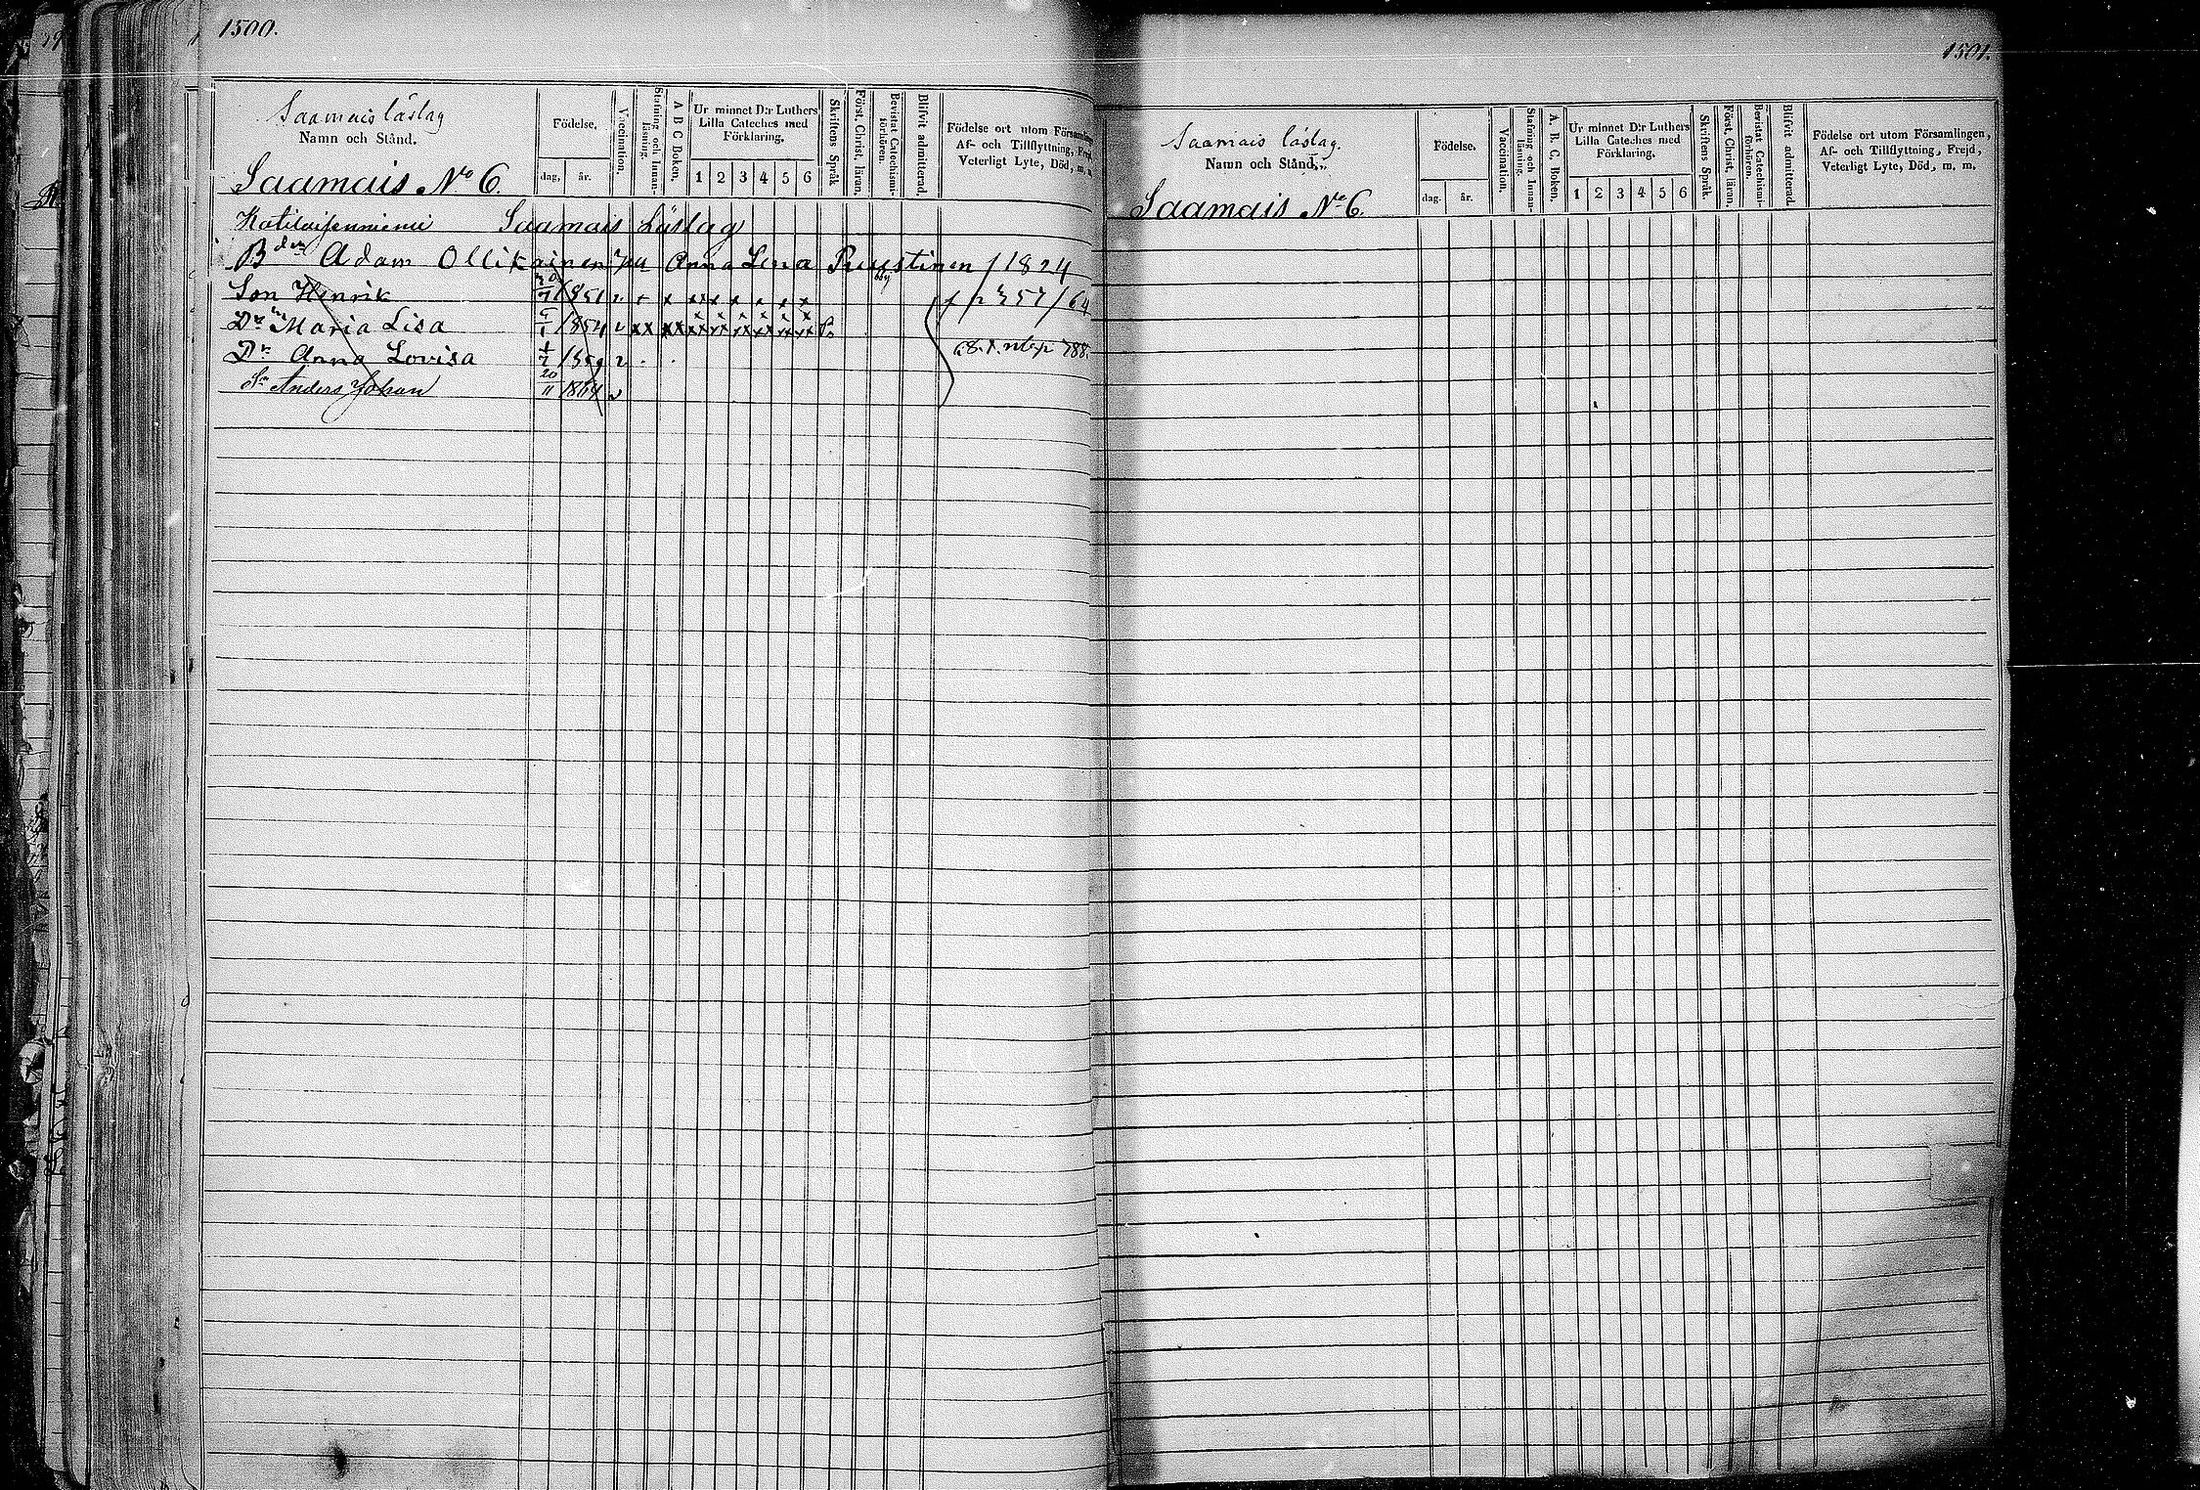 1500.
Saamais läslag
Namn och Stånd.
Födelse.
dag. år.
Vaccination.
Stafning och Innanläsning.
A B C Boken.
Ur minnet D:r Luthers
Lilla Cateches med
Förklaring.
1 2 3 4 5 6
Skriftens Språk
Först. Christ. läran.
Bevistat Catechismiförhören.
Blifvit admitterad.
Födelse ort utom Församlingen,
Af- och Tillflyttning, Frejd,
Veterligt Lyte, Död, m. m.
Saamais No 6.
Saamais Läslag
Bden Adam Ollikainen Anna Lena Puustinen f 1824
Son Henrik 1851
Dr Maria Lisa 1854
Dr Anna Lovisa 1859
Sn Anders Johan 20/11 1864
1501.
Saamais läslag.
Namn och Stånd.
Födelse.
dag. år.
Vaccination.
Stafning och Innanläsning.
A. B. C. Boken.
Ur minnet D:r Luthers
Lilla Cateches med
Förklaring.
1 2 3 4 5 6
Skriftens Språk.
Först. Christ. läran.
Bevistat Catechismiförhören.
Blifvit admitterad.
Födelse ort utom Församlingen,
Af- och Tillflyttning, Frejd,
Veterligt Lyte, Död, m. m.
Saamais No 6.